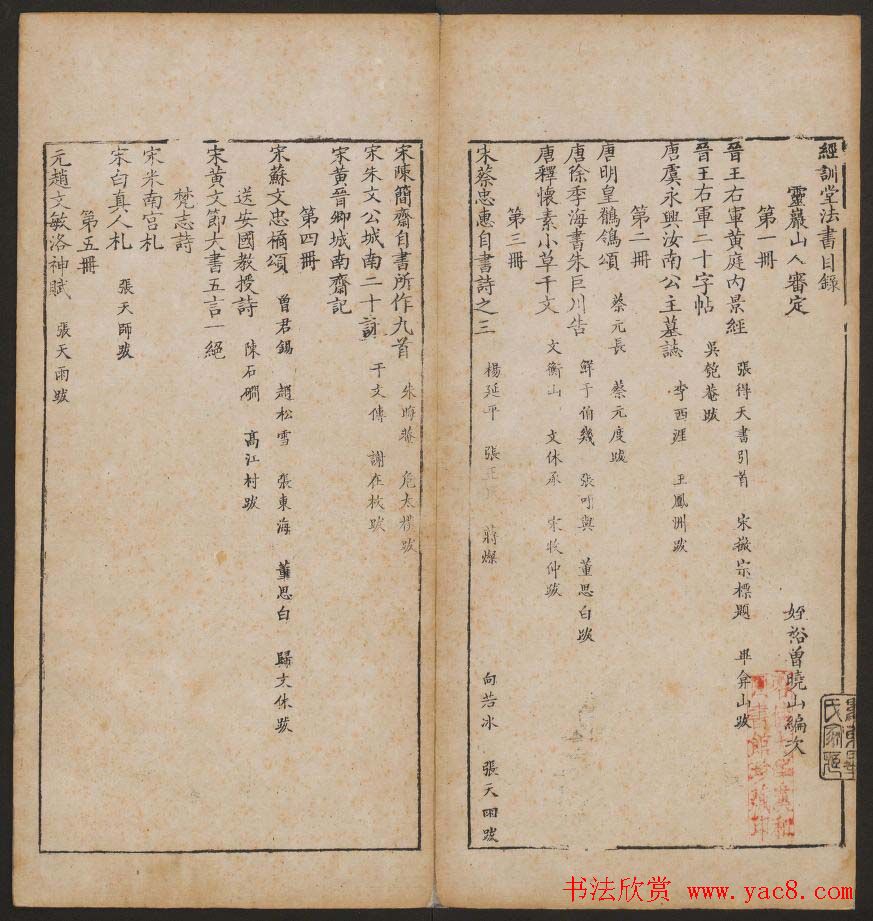 經訓堂法書目錄
靈巖山人審定
姪裕曾曉山編次
第一冊
晉王右軍黃庭內景經 張得天書引首 宋徽宗標題 畢弇山跋
晉王右軍二十字帖 吳匏菴跋
唐虞永興汝南公主墓誌 李西涯 王鳳洲跋
第二冊
唐明皇鶺鴒頌 蔡元長 蔡元度跋
唐徐季海書朱巨川告 鮮于伯幾 張可與 董思白跋
唐釋懷素小草千文 文衡山 文休承 宋牧仲跋
第三冊
宋蔡忠惠自書詩之三 楊延平 張正 蔣燦 向若冰 張天雨跋
宋陳簡齋自書所作九首 朱晦菴 危太樸跋
宋朱文公城南二十詠 干文傳 謝在杭跋
宋黃晉卿城南齋記
第四冊
宋蘇文忠橘頌 曾君錫 趙松雪 張東海 董思白 歸文休跋
送安國教授詩 陳石磵 高江村跋
宋黃文節大書五言一絕
梵志詩
宋米南宮札
宋白真人札 張天師跋
第五冊
元趙文敏洛神賦 張天雨跋
书法欣赏 www.yac8.com